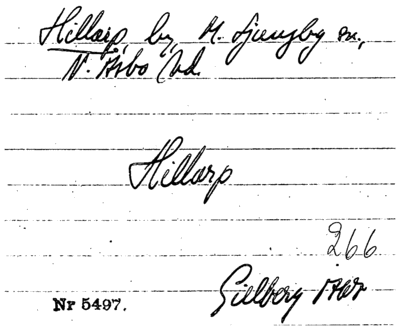 Hillarp, by, M. Ljungby sn,
N. Åsbo hd.
Hillarp
266
Gillberg
Nr 5497.